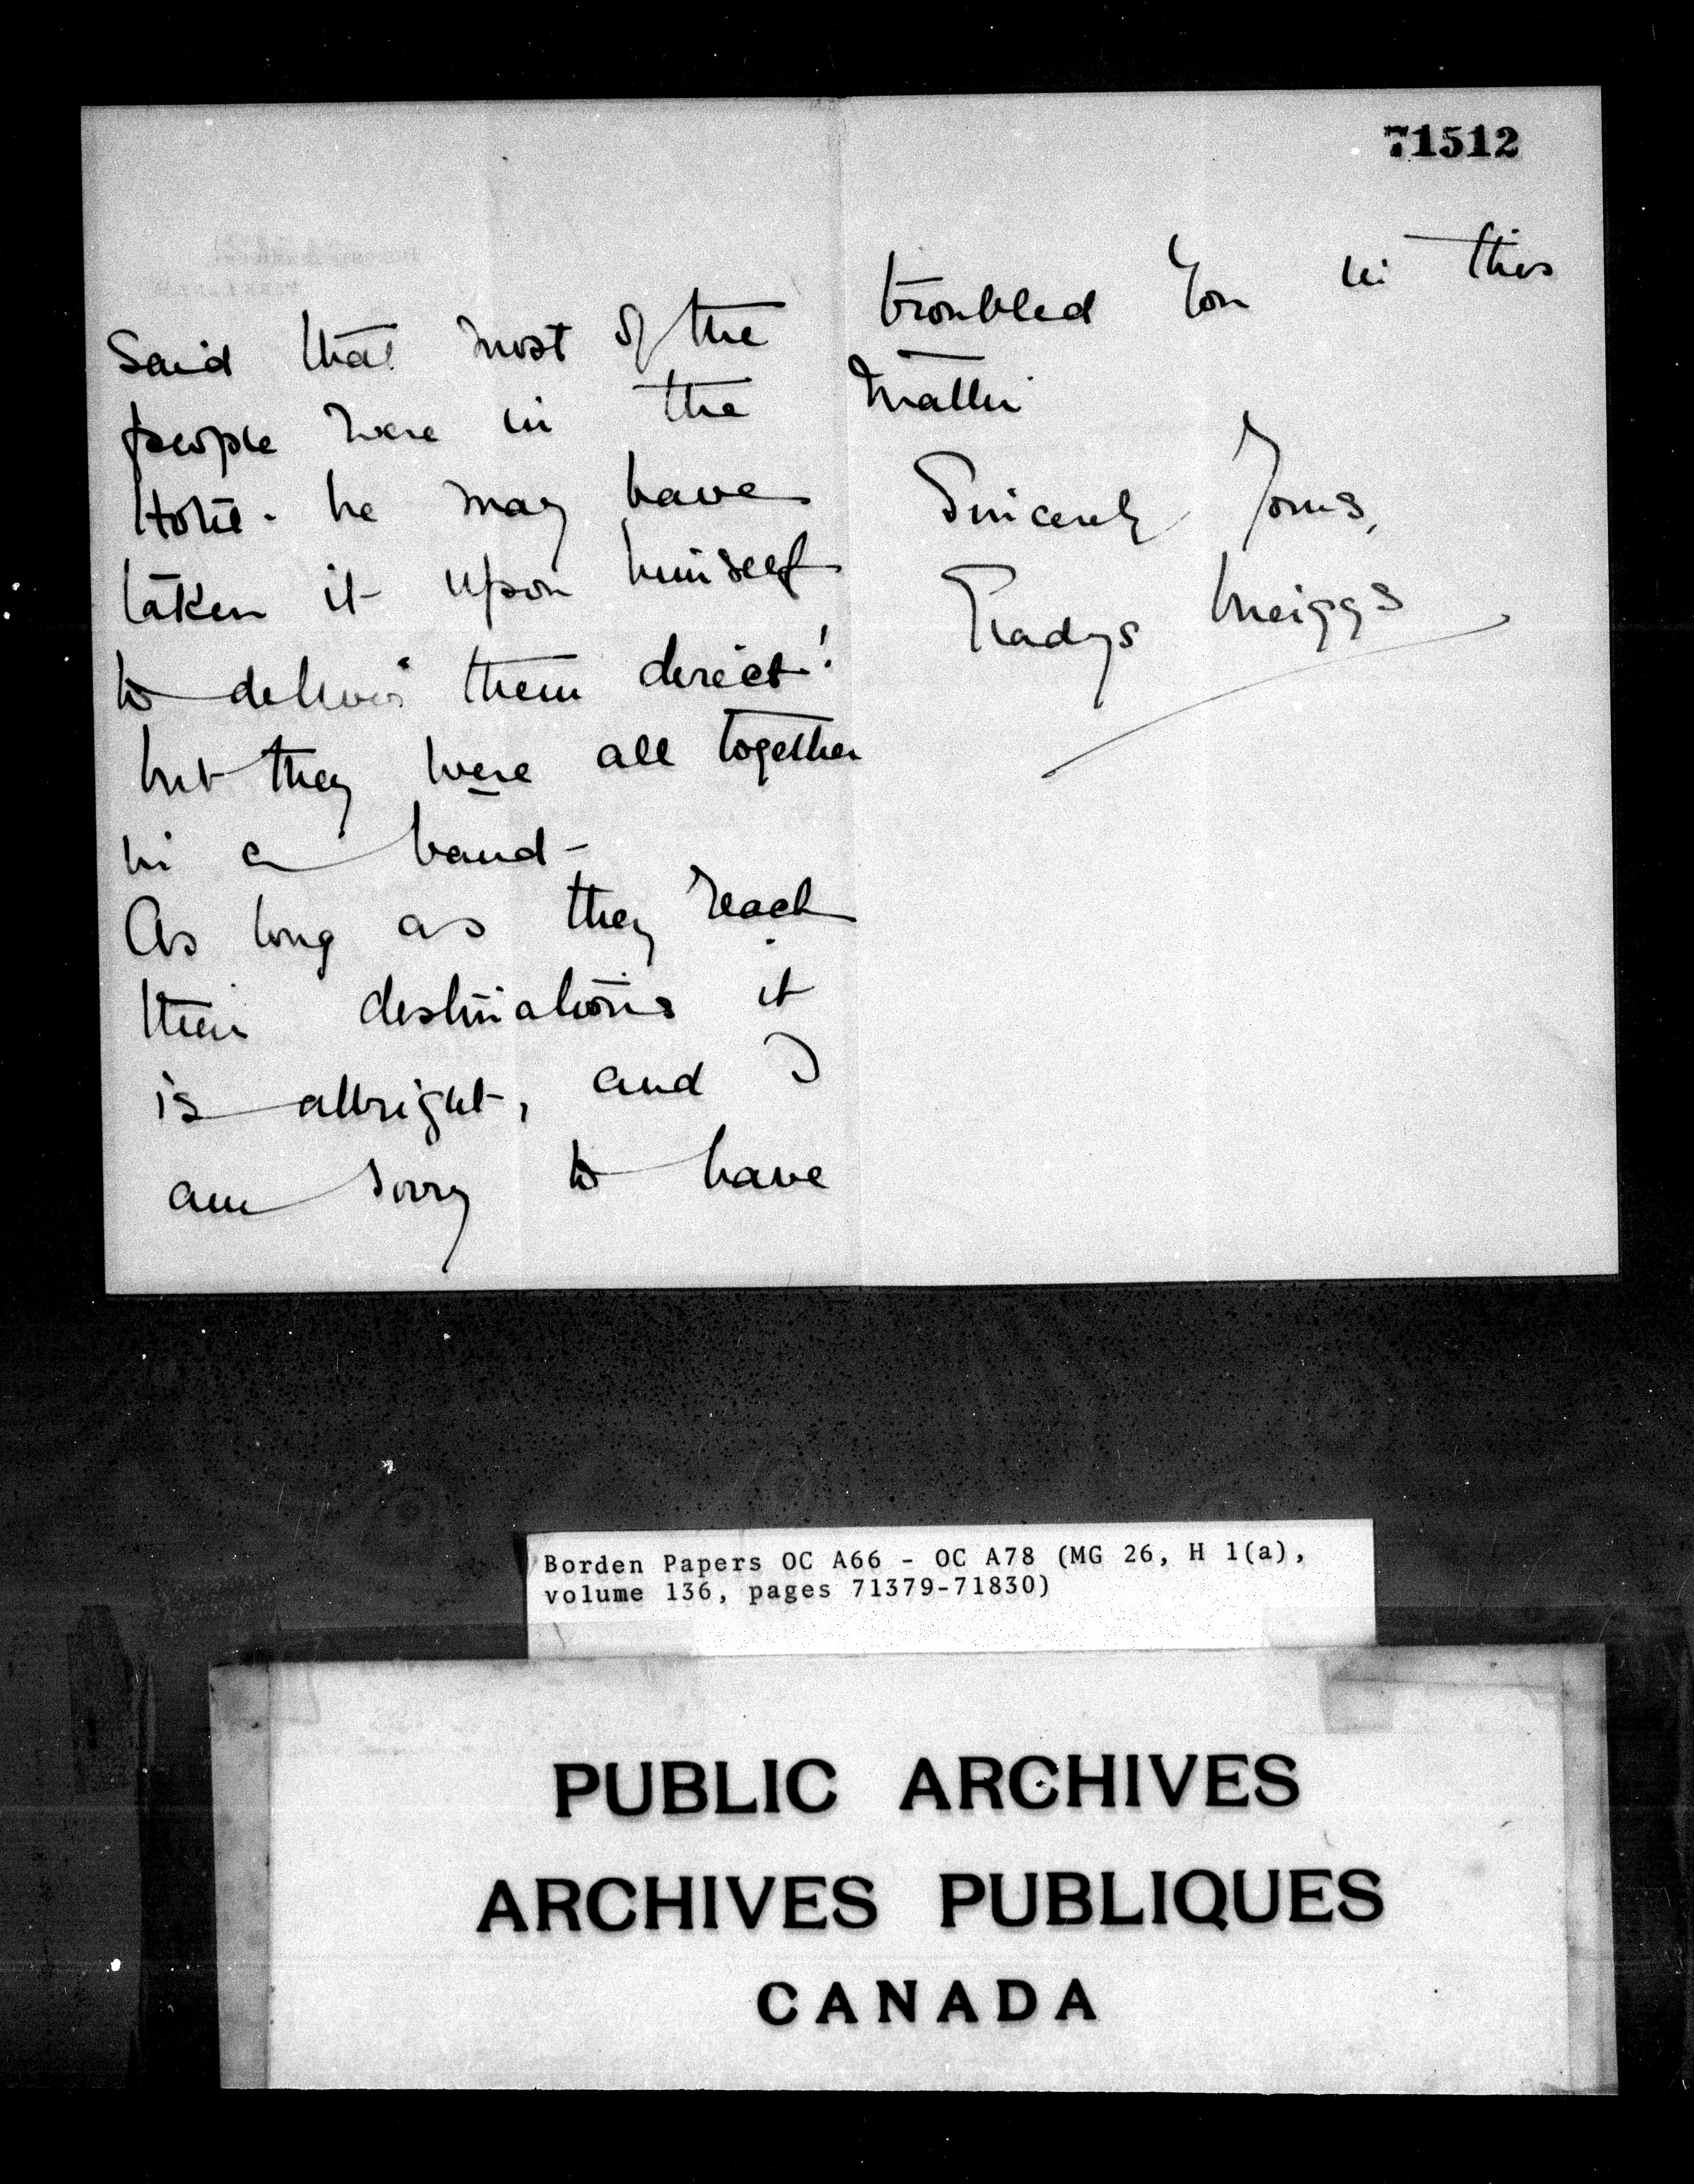 71512
Said that most of the
people were in the
Hotel - he may have
taken it upon himself
to deliver them direct!
but they were all together
in a band -
As long as they reach
their destinations it
is allright, and I
am sorry to have
troubled you in this
matter
Sincerely Yours,
Gladys Meiggs
Borden Papers OC A66 - OC A78 (MG 26, H 1(a),
volume 136, pages 71379-71830)
PUBLIC ARCHIVES
ARCHIVES PUBLIQUES
CANADA